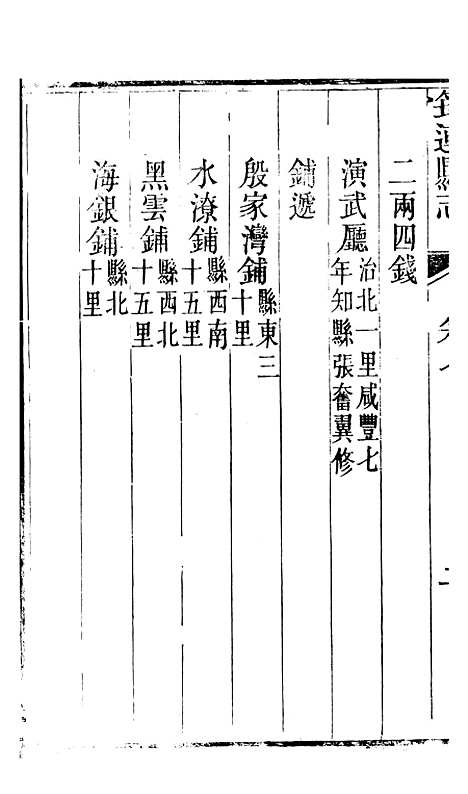 筠連縣志
二兩四錢
演武廳 治北一里咸豐七年知縣張奮翼修
鋪遞
殷家灣鋪 縣東三十里
水潦鋪 縣西南十五里
黑雲鋪 縣西北十五里
海銀鋪 縣北十里